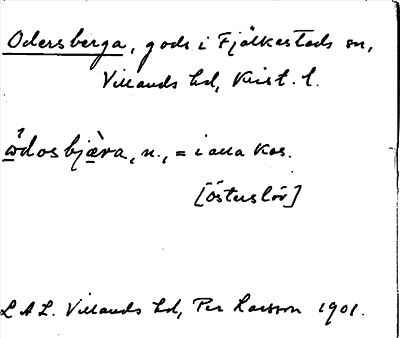 Odersberga, gods i Fjälkestads sn,
Villands hd, Krist. l.
ẁdosbjæ̀ra, n., = i alla kas.
[Österslöv]
L A L. Villands hd, Per Larsson 1901.